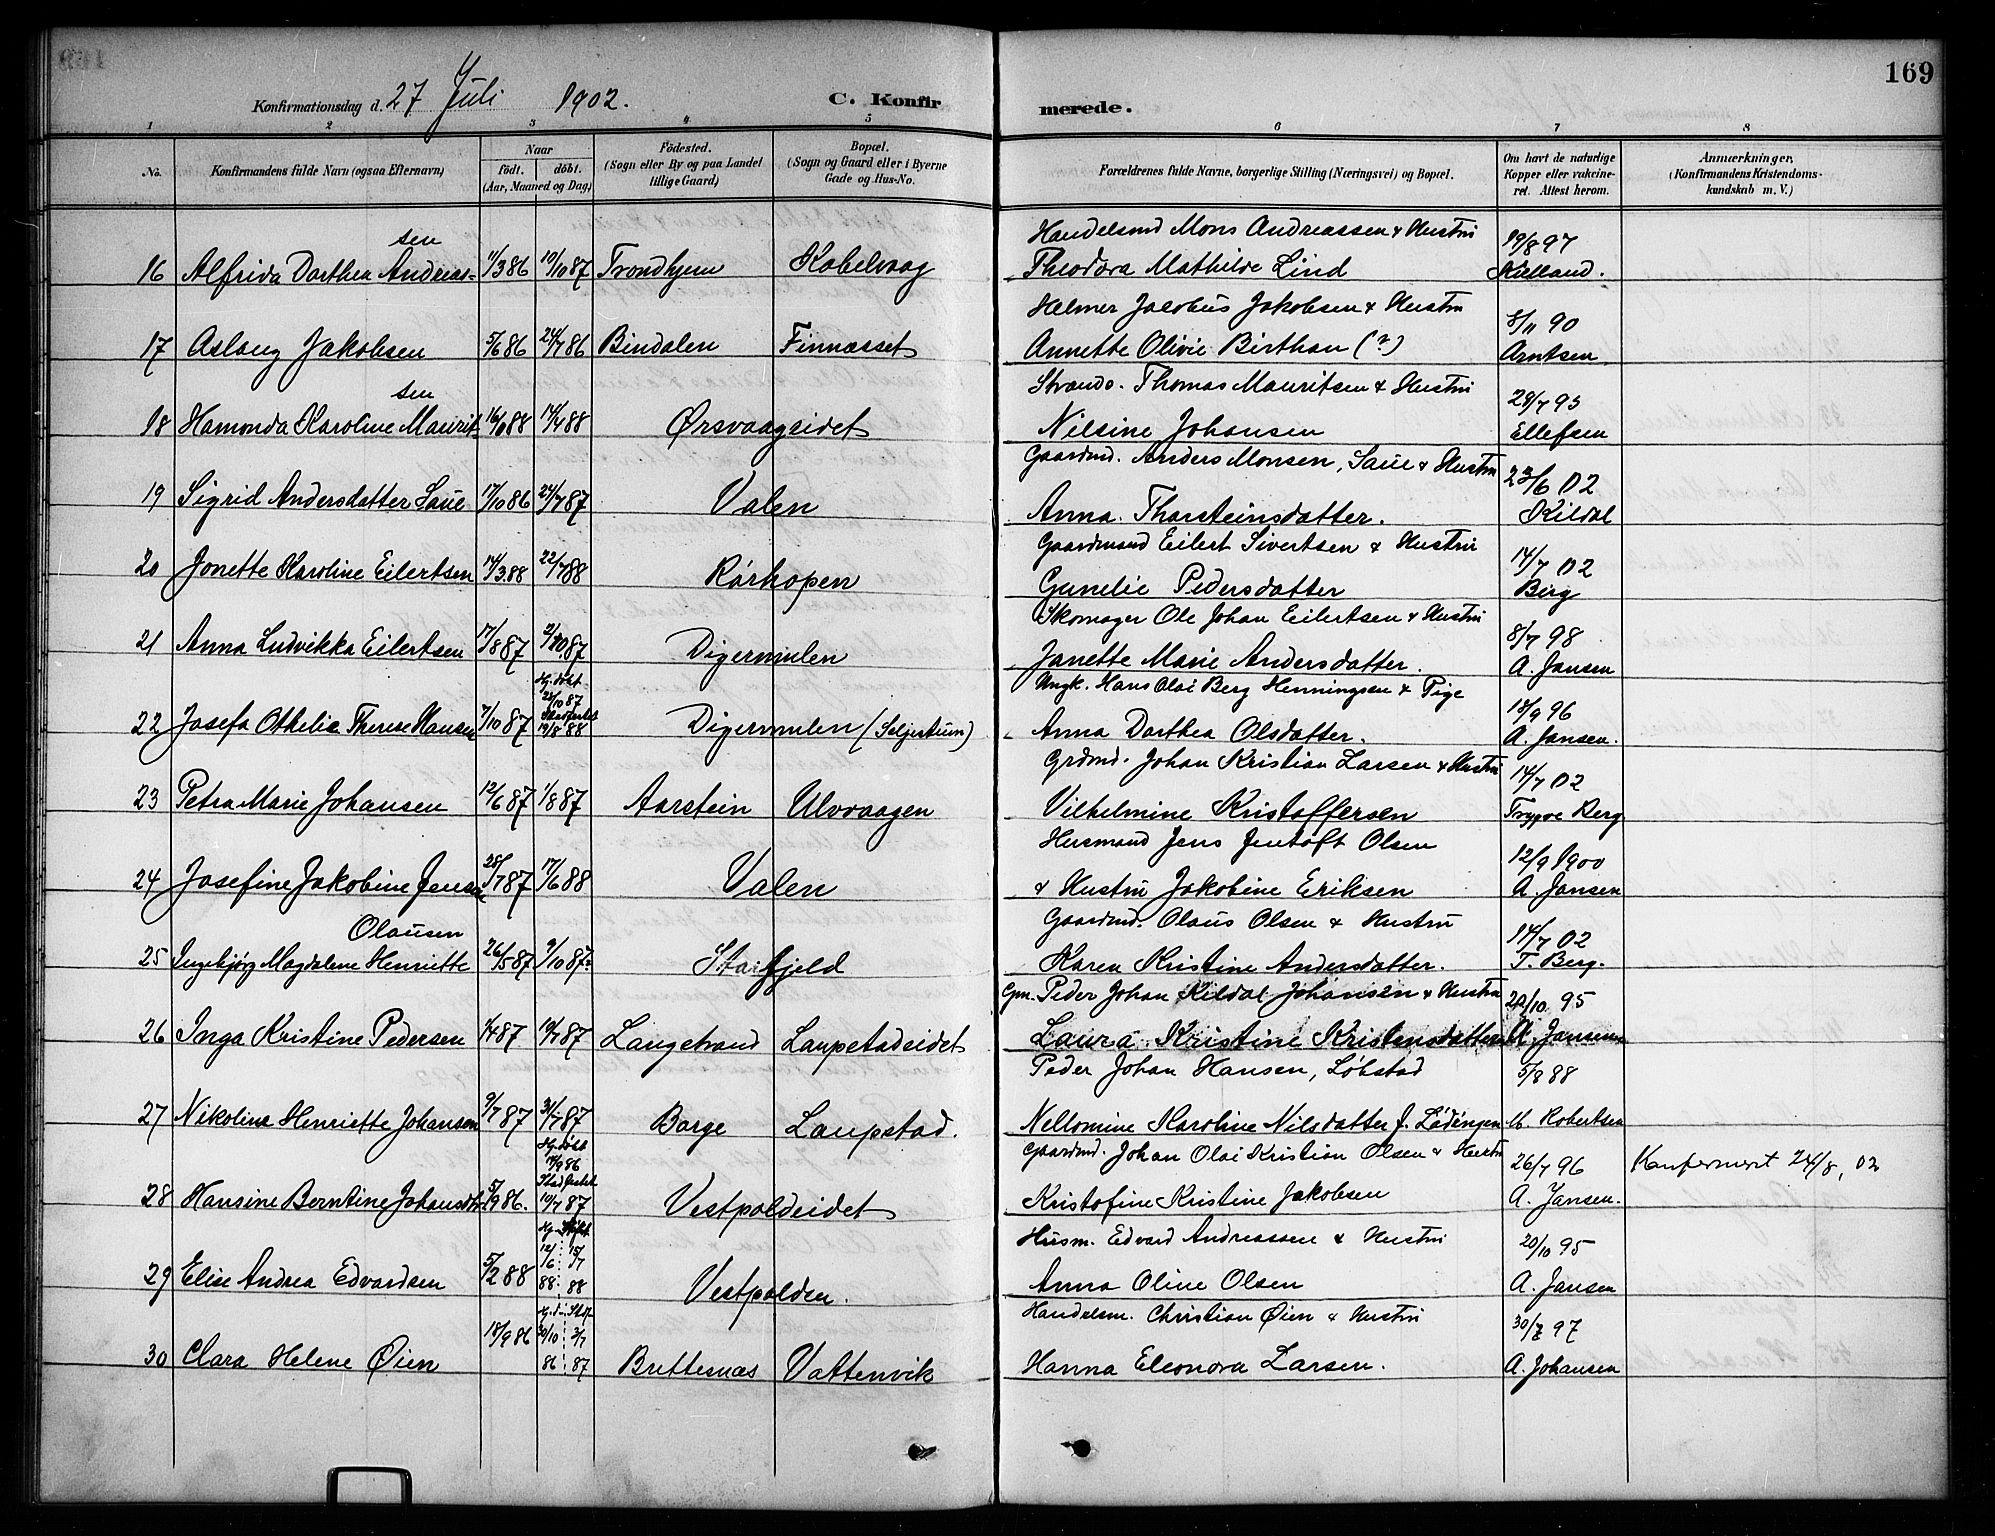 169
Konfirmationsdag d. 27 Juli 1902. C. Konfirmerede.
1 2 3 4 5 6 7 8
No. Konfirmandens fulde Navn (ogsaa Efternavn) Naar født. døbt. (Aar, Maaned og Dag) Fødested. (Sogn eller By og paa Landet tillige Gaard) Bopæl. (Sogn og Gaard eller i Byerne Gade og Hus-No. Forældrenes fulde Navne, borgerlige Stilling (Næringsvei) og Bopæl. Om havt de naturlige Kopper eller vakcineret. Attest herom. Anmærkninger, (Konfirmandens Kristendomskundskab m. V.)
sen Handelsmd Mons Andreassen & Hustru 19/8 97
16 Alfrida Dorthea Andreas- 11/3 86 10/10 87 Trondhjem Kabelvaag Theodora Mathilde Lind Kielland.
Helmer Jacobus Jakobsen & Hustru 8/11 90
17 Aslaug Jakobsen 5/6 86 24/7 86 Bindalen Finnæsset Annette Olivie Birthan (?) Arntsen
sen Strands. Thomas Mauritsen & Hustru 28/7 93
18 Hamonda Karoline Maurit- 88 17/4 88 Ørsvaageidet Nilsine Johansen Ellefsen
Gaardmd. Anders Monsen, Saue & Hustru 23/6 02
19 Sigrid Andersdatter Saue 17/10 86 24/7 87 Valen Anna Thorsteinsdatter. Kildal
Gaardmand Eilert Sivertsen & Hustru 14/7 02
20 Jonette Karoline Eilertsen 14/3 88 22/7 88 Rørhopen Gunelie Pedersdatter Berg
Skomager Ole Johan Eilertsen & Hustru 8/7 98
21 Anna Ludvikka Eilertsen 17/8 87 2/10 87 Digermulen Janette Marie Andersdatter. A. Jansen
Hj. døbt 22/10 87 Stadfæstet Ungk. Hans Olai Berg Henningsen & Pige 18/9 96
22 Josefa Othelie Therese Hansen 7/10 87 19/8 88 Digermulen (Seljestrum) Anna Dorthea Olsdatter. A. Jansen.
Grdmd. Johan Kristian Larsen & Hustru 14/7 02
23 Petra Marie Johansen 12/6 87 1/8 87 Aarstein Ulvvaagen Vilhelmine Kristoffersen Trygve Berg
Husmand Jens Jentoft Olsen 12/9 1900
24 Josefine Jakobine Jensen 28/7 87 17/6 88 Valen & Hustru Jakobine Eriksen A. Jansen
Olausen Gaardmd. Olaus Olsen & Hustru 14/7 02
25 Ingebjørg Magdalene Henriette 26/5 87 9/10 87 Storfjeld Karen Kristine Andersdatter. T. Berg.
Gm. Peder Johan Kildal Johansen & Hustru 20/10 95
26 Inga Kristine Pedersen 1/4 87 10/7 87 Langstrand Laupstadeidet Laura Kristine Kristensdatter A. Jansen
Peder Johan Hansen, Løbstad 5/8 88
27 Nikoline Henriette Johansen 9/7 87 31/7 87 Borge Laupstad. Nellomine Karoline Nilsdatter f. Lødingen M. Robertsen
Hj. døbt 17/9 86 Stadfæstet Gaardmd. Johan Olai Kristian Olsen & Hustru 26/7 96 Konfirmeret 24/8, 02
28 Hansine Berntine Johansdtr. 5/9 86. 10/7 87 Vestpoldeidet Kristofine Kristine Jakobsen A. Jansen.
Hj. Stadf. Husm. Edvard Andreassen & Hustru 20/10 95
29 Elise Andrea Edvardsen 5/2 88 12/6 88 15/7 88 Vestpolden. Anna Oline Olsen A. Jansen
Hj. d. Stdf. Handelsm. Christian Øien & Hustru 30/7 97
30 Clara Helene Øien 18/9 86 30/10 86 3/7 87 Brettesnæs Vattenvik Hanna Eleonora Larsen. A. Johansen